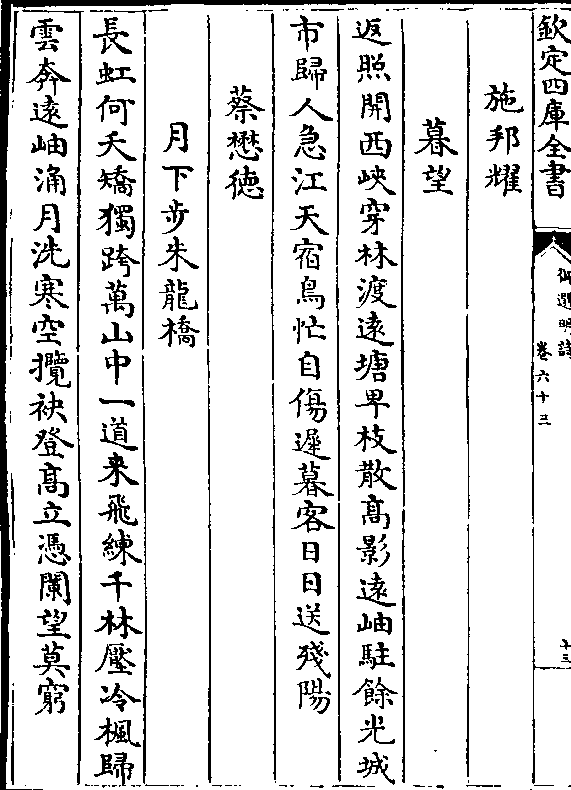 欽定四庫全書
御選明詩
卷六十三
十三
施邦耀
暮望
返照開西峽穿林渡遠塘卑枝散高影遠岫駐餘光城
市歸人急江天宿鳥忙自傷遲暮客日日送殘陽
蔡懋德
月下步朱龍橋
長虹何夭矯獨跨萬山中一道來飛練千林壓冷楓歸
雲奔遠岫涌月洗寒空攬袂登高立憑闌望莫窮